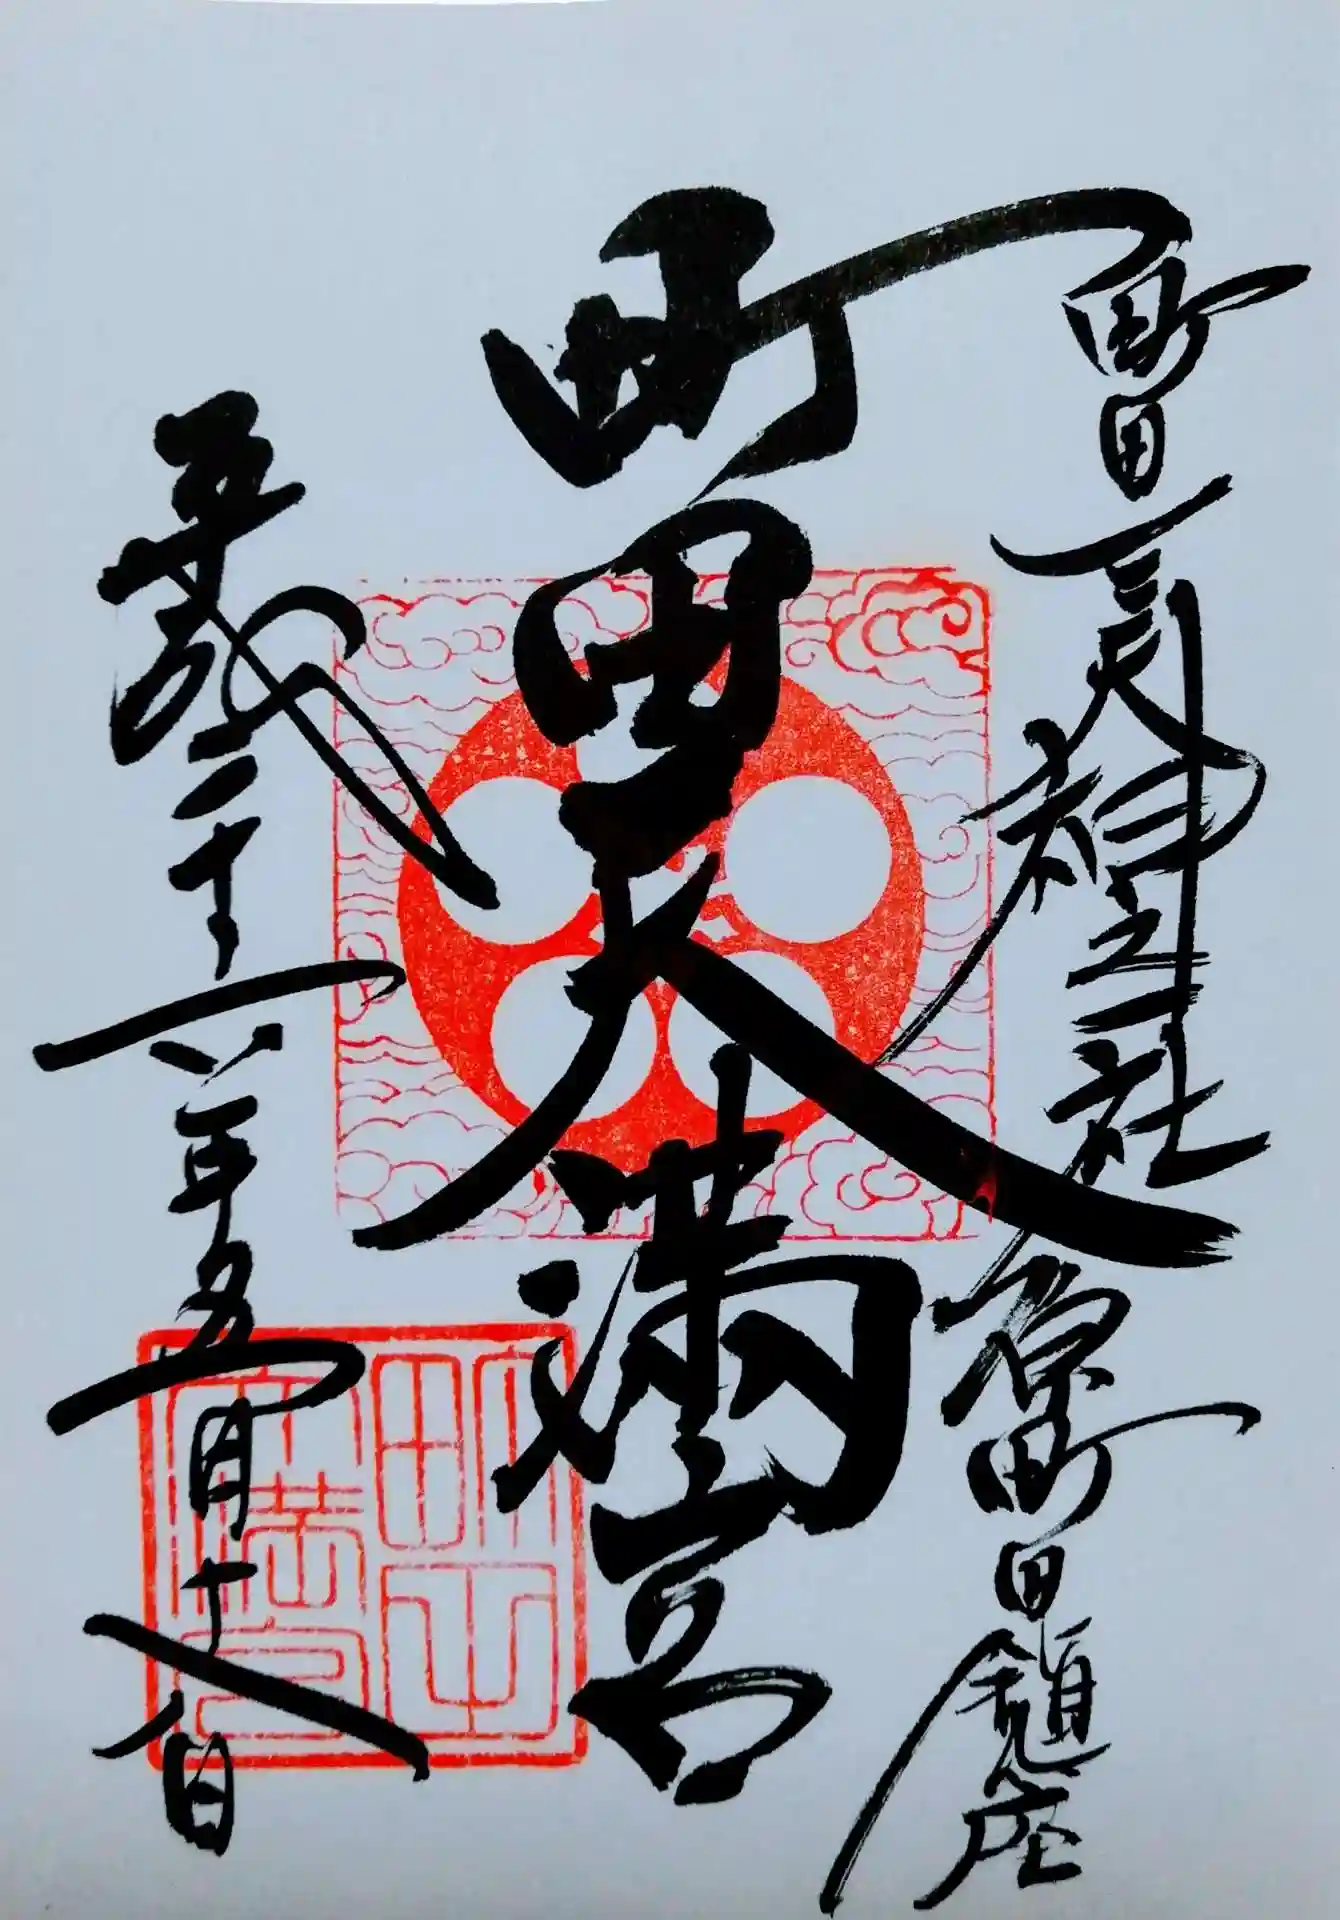 町田天神之社 原町田鎮座
町田天満宮
平成二十六年五月十八日
町田天満宮